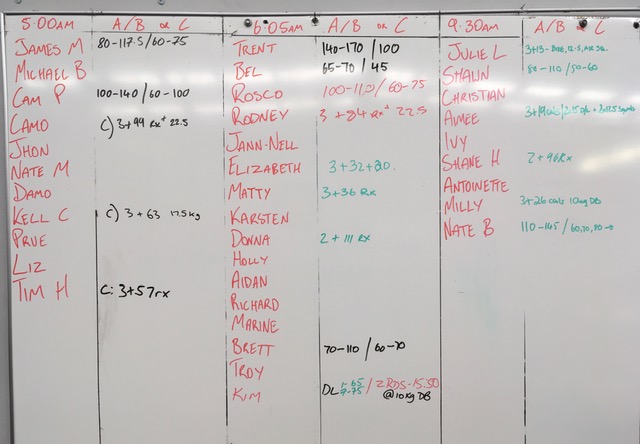 5:00AM A/B OR C
JAMES M 80-117.5/60-75
MICHAEL B
CAM P 100-140/60-100
CAMO C) 3+99 Rx+ 22.5
JHON
NATE M
DAMO
KELL C C) 3+63 17.5kg
PRUE
LIZ
TIM H C: 3+57rx
6:05AM A/B OR C
TRENT 140-170/100
BEL 65-70/45
ROSCO 100-110/60-75
RODNEY 3+84 Rx+ 22.5
JANN-NELL
ELIZABETH 3+32+20.
MATTY 3+36 Rx
KARSTEN
DONNA 2+111 RX
HOLLY
AIDAN
RICHARD
MARINE
BRETT 70-110/60-70
TROY
KIM DL 2RDS-15.50
@10Kg DB
9:30AM A/B OR C
JULIE L 3+13-
SHAUN 80-110/50-60
CHRISTIAN
AIMEE
IVY
SHANE H 2+96Rx
ANTOINETTE
MILLY 3+26 cals 10kg DB
NATE B 110-145/60,70,80